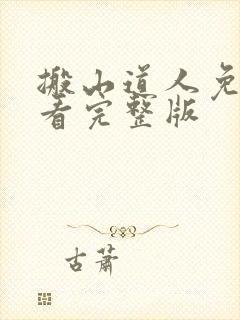 搬山道人免
看完整版
古萧